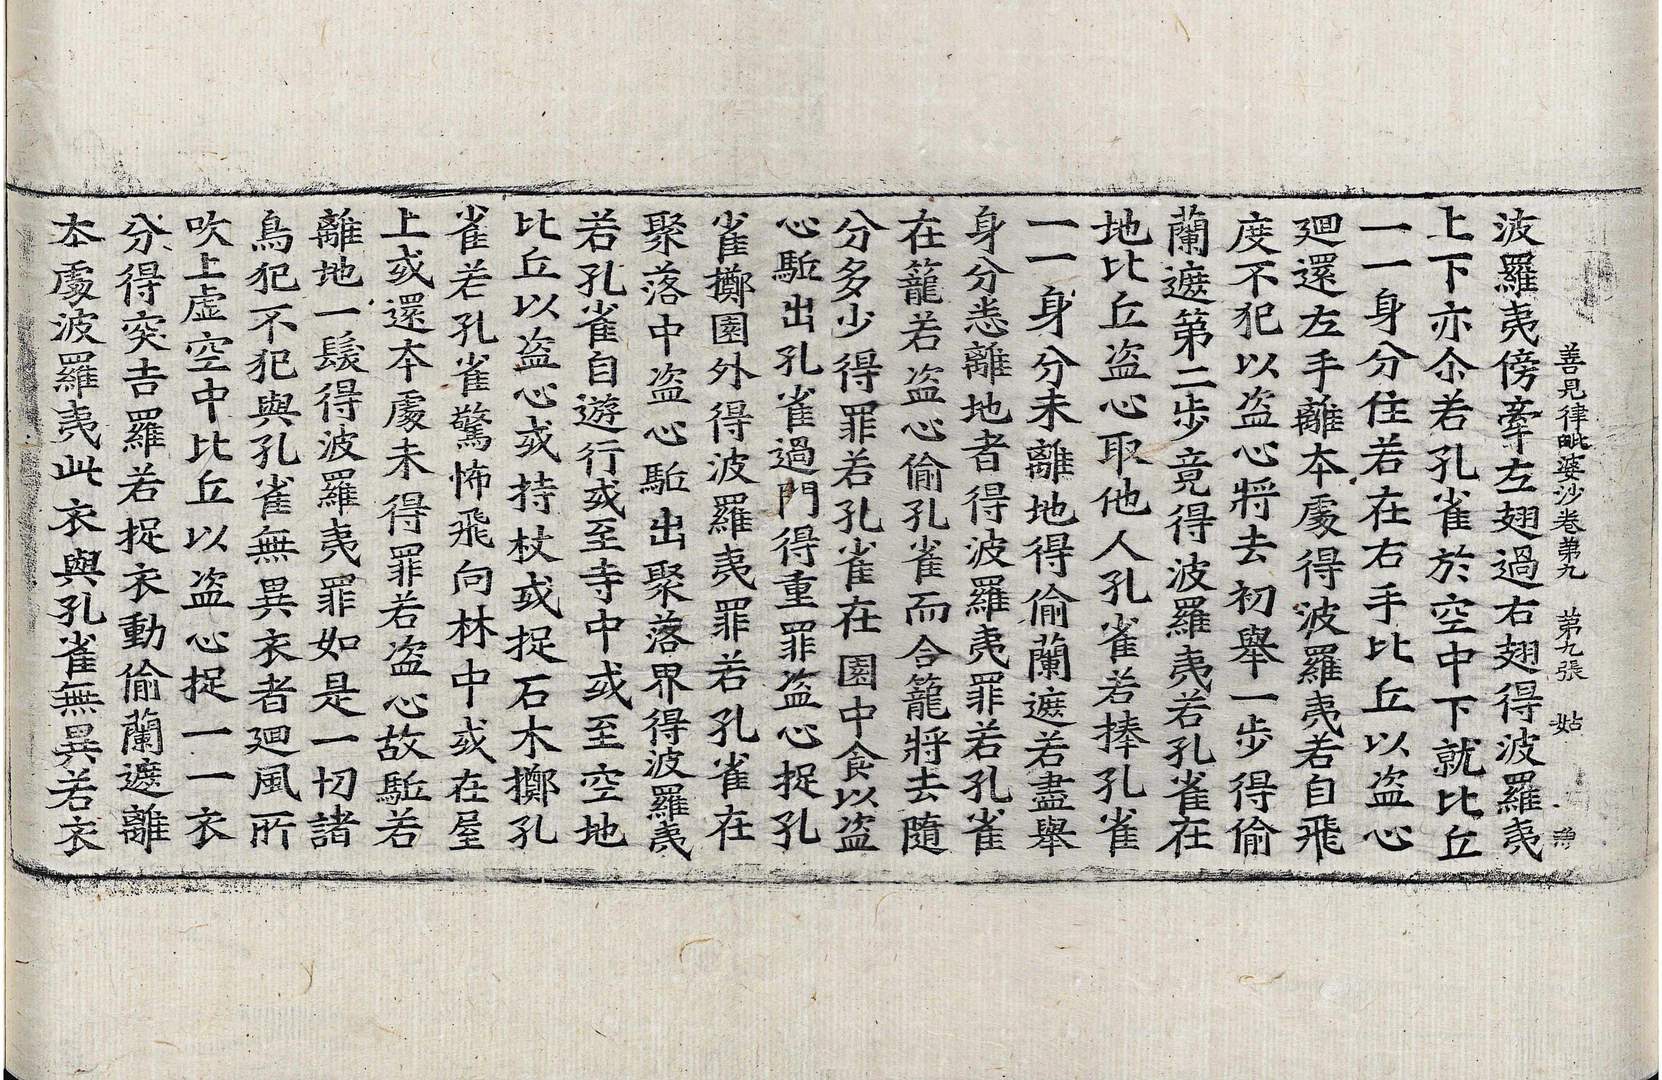 善見律毗婆沙卷第九 第九張 姑
波羅夷傍牽左翅過右翅得波羅夷
上下亦尒若孔雀於空中下就比丘
一一身分住若在右手比丘以盗心
廻還左手離本處得波羅夷若自飛
度不犯以盗心將去初舉一步得偷
蘭遮第二步竟得波羅夷若孔雀在
地比丘盗心取他人孔雀若捧孔雀
一一身分未離地得偷蘭遮若盡舉
身分悉離地者得波羅夷罪若孔雀
在籠若盗心偷孔雀而合籠將去隨
分多少得罪若孔雀在園中食以盗
心駈出孔雀過門得重罪盗心捉孔
雀擲園外得波羅夷罪若孔雀在
聚落中盗心駈出聚落界得波羅夷
若孔雀自遊行或至寺中或至空地
比丘以盗心或持杖或捉石木擲孔
雀若孔雀驚怖飛向林中或在屋
上或還本處未得罪若盗心故駈若
離地一髮得波羅夷罪如是一切諸
鳥犯不犯與孔雀無異衣者廻風所
吹上虛空中比丘以盗心捉一一衣
分得突吉羅若捉衣動偷蘭遮離
本處波羅夷此衣與孔雀無異若衣